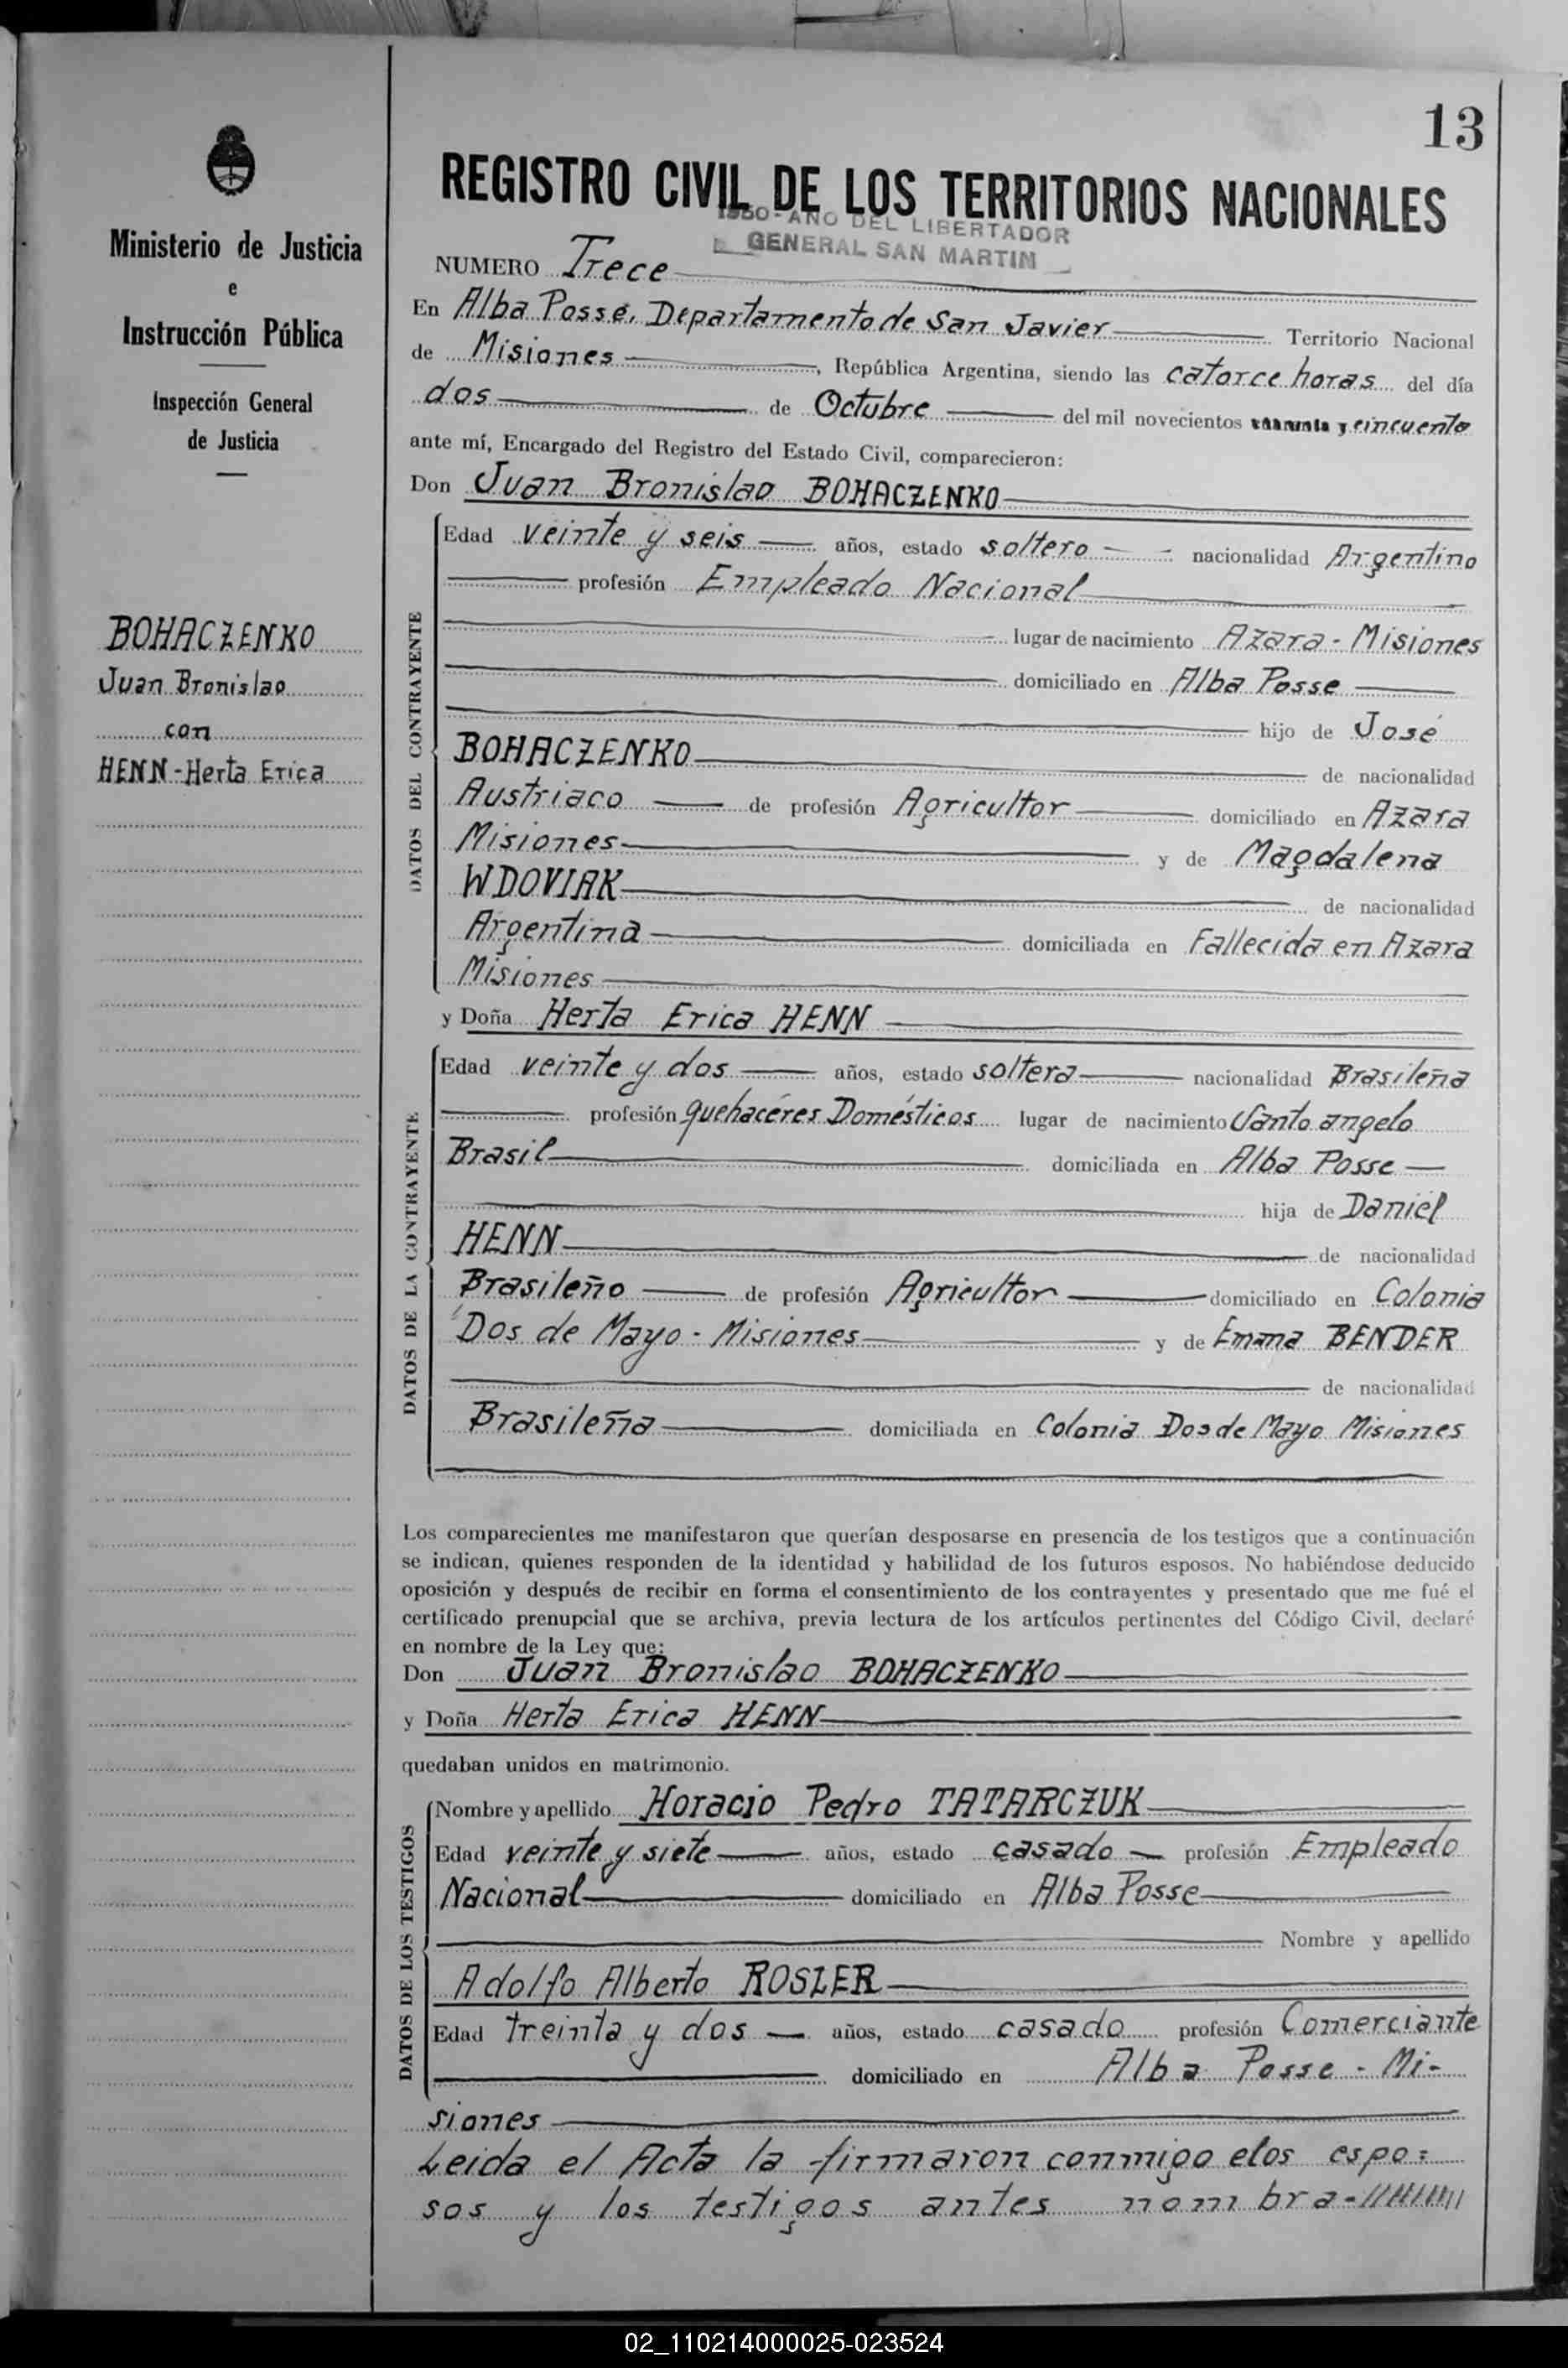 13
Ministerio de Justicia
e
Instrucción Pública
Inspección General
de Justicia
BOHACZENKO
Juan Bronislao
con
HENN-Herta Erica
REGISTRO CIVIL DE LOS TERRITORIOS NACIONALES
1950-AÑO DEL LIBERTADOR
GENERAL SAN MARTIN
NUMERO Trece
En Alba Posse, Departamento de San Javier Territorio Nacional
de Misiones, República Argentina, siendo las catorce horas del día
dos de Octubre del mil novecientos y cincuenta
ante mí, Encargado del Registro del Estado Civil, comparecieron:
Don Juan Bronislao BOHACZENKO
DATOS DEL CONTRAYENTE
Edad veinte y seis años, estado soltero nacionalidad Argentino
profesión Empleado Nacional
lugar de nacimiento Azara - Misiones
domiciliado en Alba Posse
hijo de José
BOHACZENKO de nacionalidad
Austriaco de profesión Agricultor domiciliado en Azara
Misiones y de Magdalena
WDOVIAK de nacionalidad
Argentina domiciliada en Fallecida en Azara
Misiones
y Doña Herta Erica HENN
DATOS DE LA CONTRAYENTE
Edad veinte y dos años, estado soltera nacionalidad Brasileña
profesión quehacéres Domésticos lugar de nacimiento Santo angelo
Brasil domiciliada en Alba Posse
hija de Daniel
HENN de nacionalidad
Brasileño de profesión Agricultor domiciliado en Colonia
Dos de Mayo - Misiones y de Emma BENDER
de nacionalidad
Brasileña domiciliada en Colonia Dos de Mayo Misiones
Los comparecientes me manifestaron que querían desposarse en presencia de los testigos que a continuación
se indican, quienes responden de la identidad y habilidad de los futuros esposos. No habiéndose deducido
oposición y después de recibir en forma el consentimiento de los contrayentes y presentado que me fué el
certificado prenupcial que se archiva, previa lectura de los artículos pertinentes del Código Civil, declaré
en nombre de la Ley que:
Don Juan Bronislao BOHACZENKO
y Doña Herta Erica HENN
quedaban unidos en matrimonio.
DATOS DE LOS TESTIGOS
Nombre y apellido Horacio Pedro TATARCZUK
Edad veinte y siete años, estado casado profesión Empleado
Nacional domiciliado en Alba Posse
Nombre y apellido
Adolfo Alberto ROSLER
Edad treinta y dos años, estado casado profesión Comerciante
domiciliado en Alba Posse - Mi-
siones
Leida el Acta la firmaron conmigo elos espo=
sos y los testigos antes nombra-
02_110214000025-023524